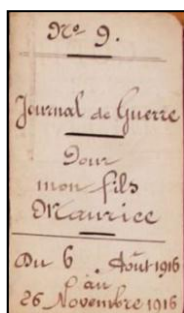 Nº 9.
Journal de Guerre
Pour
mon fils
Maurice
Du 6 Août 1916
au
26 Novembre 1916